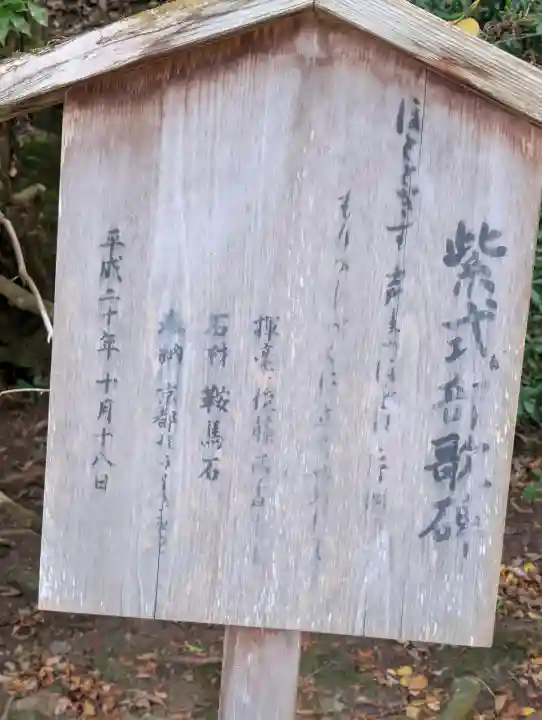 紫式部歌碑
ほととぎす 声まつほどは 片岡の
もりのしづくに 立ちやぬれまし
揮毫
石材 鞍馬石
奉納 京都
平成二十年十月十八日